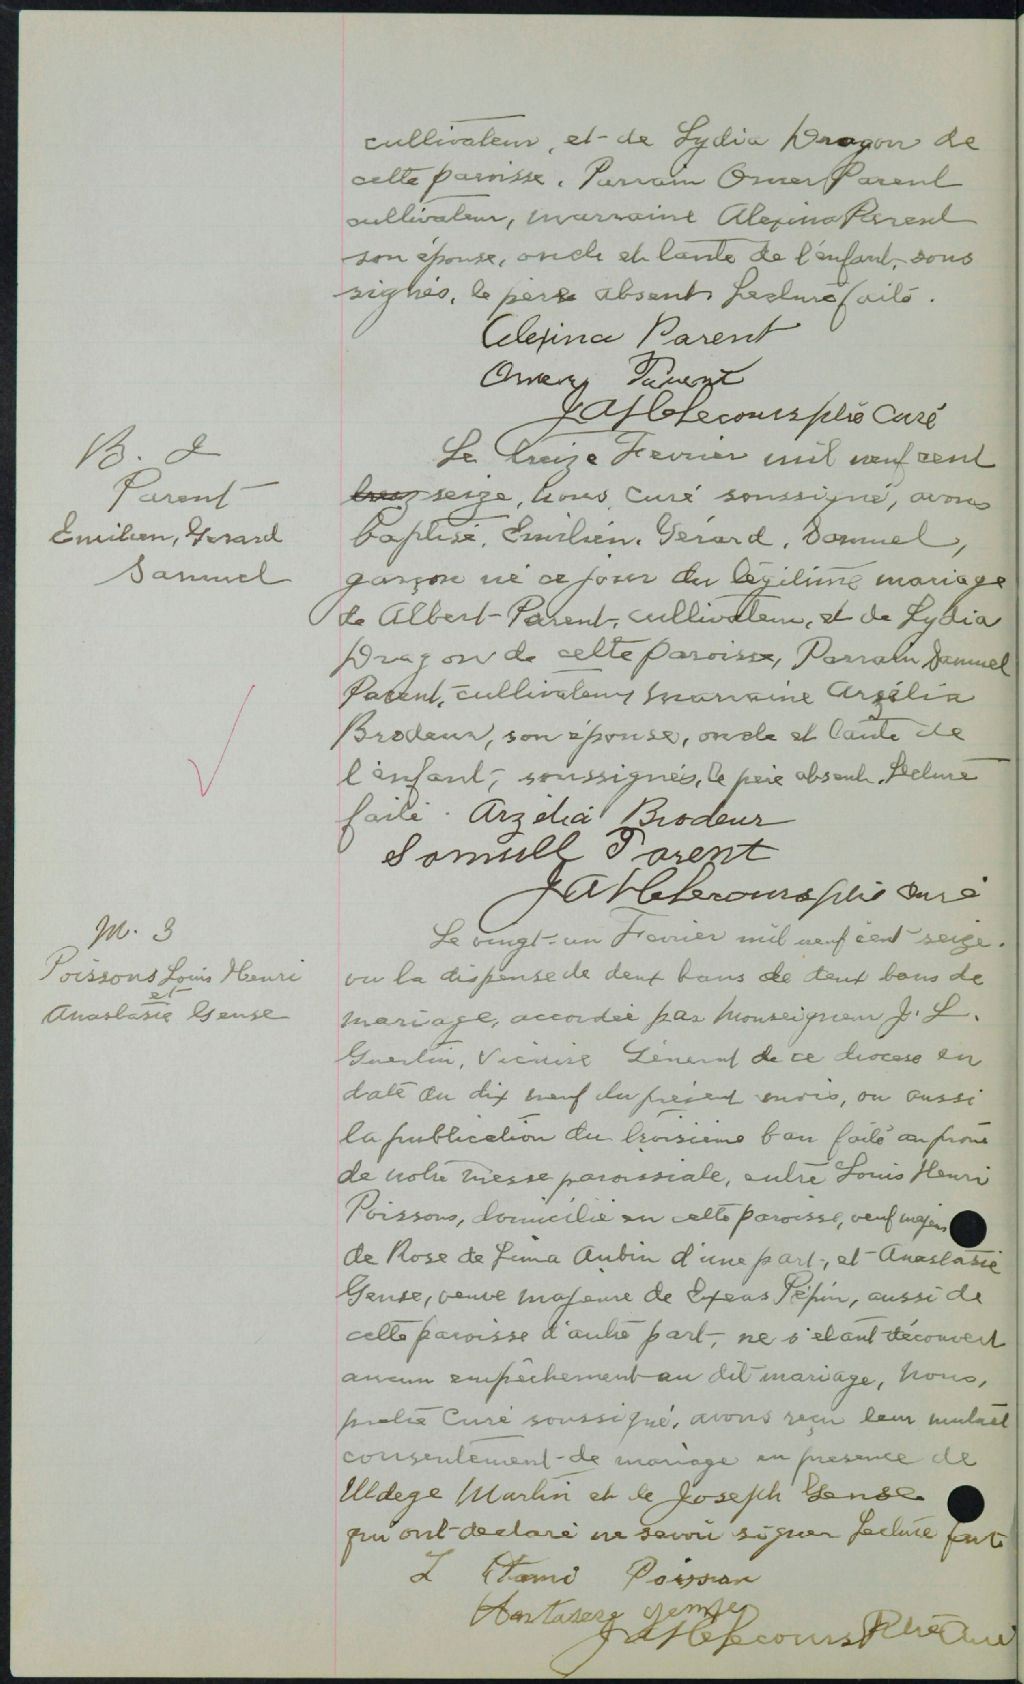 cultivateur, et de Lydia Dragon de
cette paroisse. Parrain Omer Parent
cultivateur, marraine Alexina Parent
son épouse, oncle et tante de l'enfant, sous
signés, le père absent. Lecture faite.
Alexina Parent
Omer Parent
J A H Lecours ptre Curé
B. 2
Parent
Emilien, Gerard
Samuel
Le treize Fevrier mil neuf cent
treiz seize, nous Curé soussigné, avons
baptisé, Emilien, Gérard, Samuel,
garçon né ce jour du légitime mariage
de Albert Parent, cultivateur, et de Lydia
Dragon de cette paroisse, Parrain Samuel
Parent, cultivateur, marraine Arzélia
Brodeur, son épouse, oncle et tante de
l'enfant, soussignés, le père absent. Lecture
faite. Arzélia Brodeur
Samuell Parent
J A H Lecours ptre curé
M. 3
Poissons Louis Henri
et
Anastasie Gense
Le vingt-un Fevrier mil neuf cent seize.
vu la dispense de deux bans de deux bans de
mariage, accordée par Monseigneur J. L.
Guertin, Vicaire Général de ce diocese en
date du dix neuf du présent mois, vu aussi
la publication du troisième ban faite au prône
de notre messe paroissiale, entre Louis Henri
Poissons, domicilié en cette paroisse, veuf majeur
de Rose de Lima Aubin d'une part, et Anastasie
Gense, veuve majeure de Pépin, aussi de
cette paroisse d'autre part, ne s'étant découvert
aucun empêchement au dit mariage, Nous,
prêtre Curé soussigné, avons reçu leur mutuel
consentement de mariage en presence de
Uldege Martin et de Joseph Gense
qui ont declaré ne savoir signer Lecture faite
L Poisson
J A H Lecours Ptre Curé